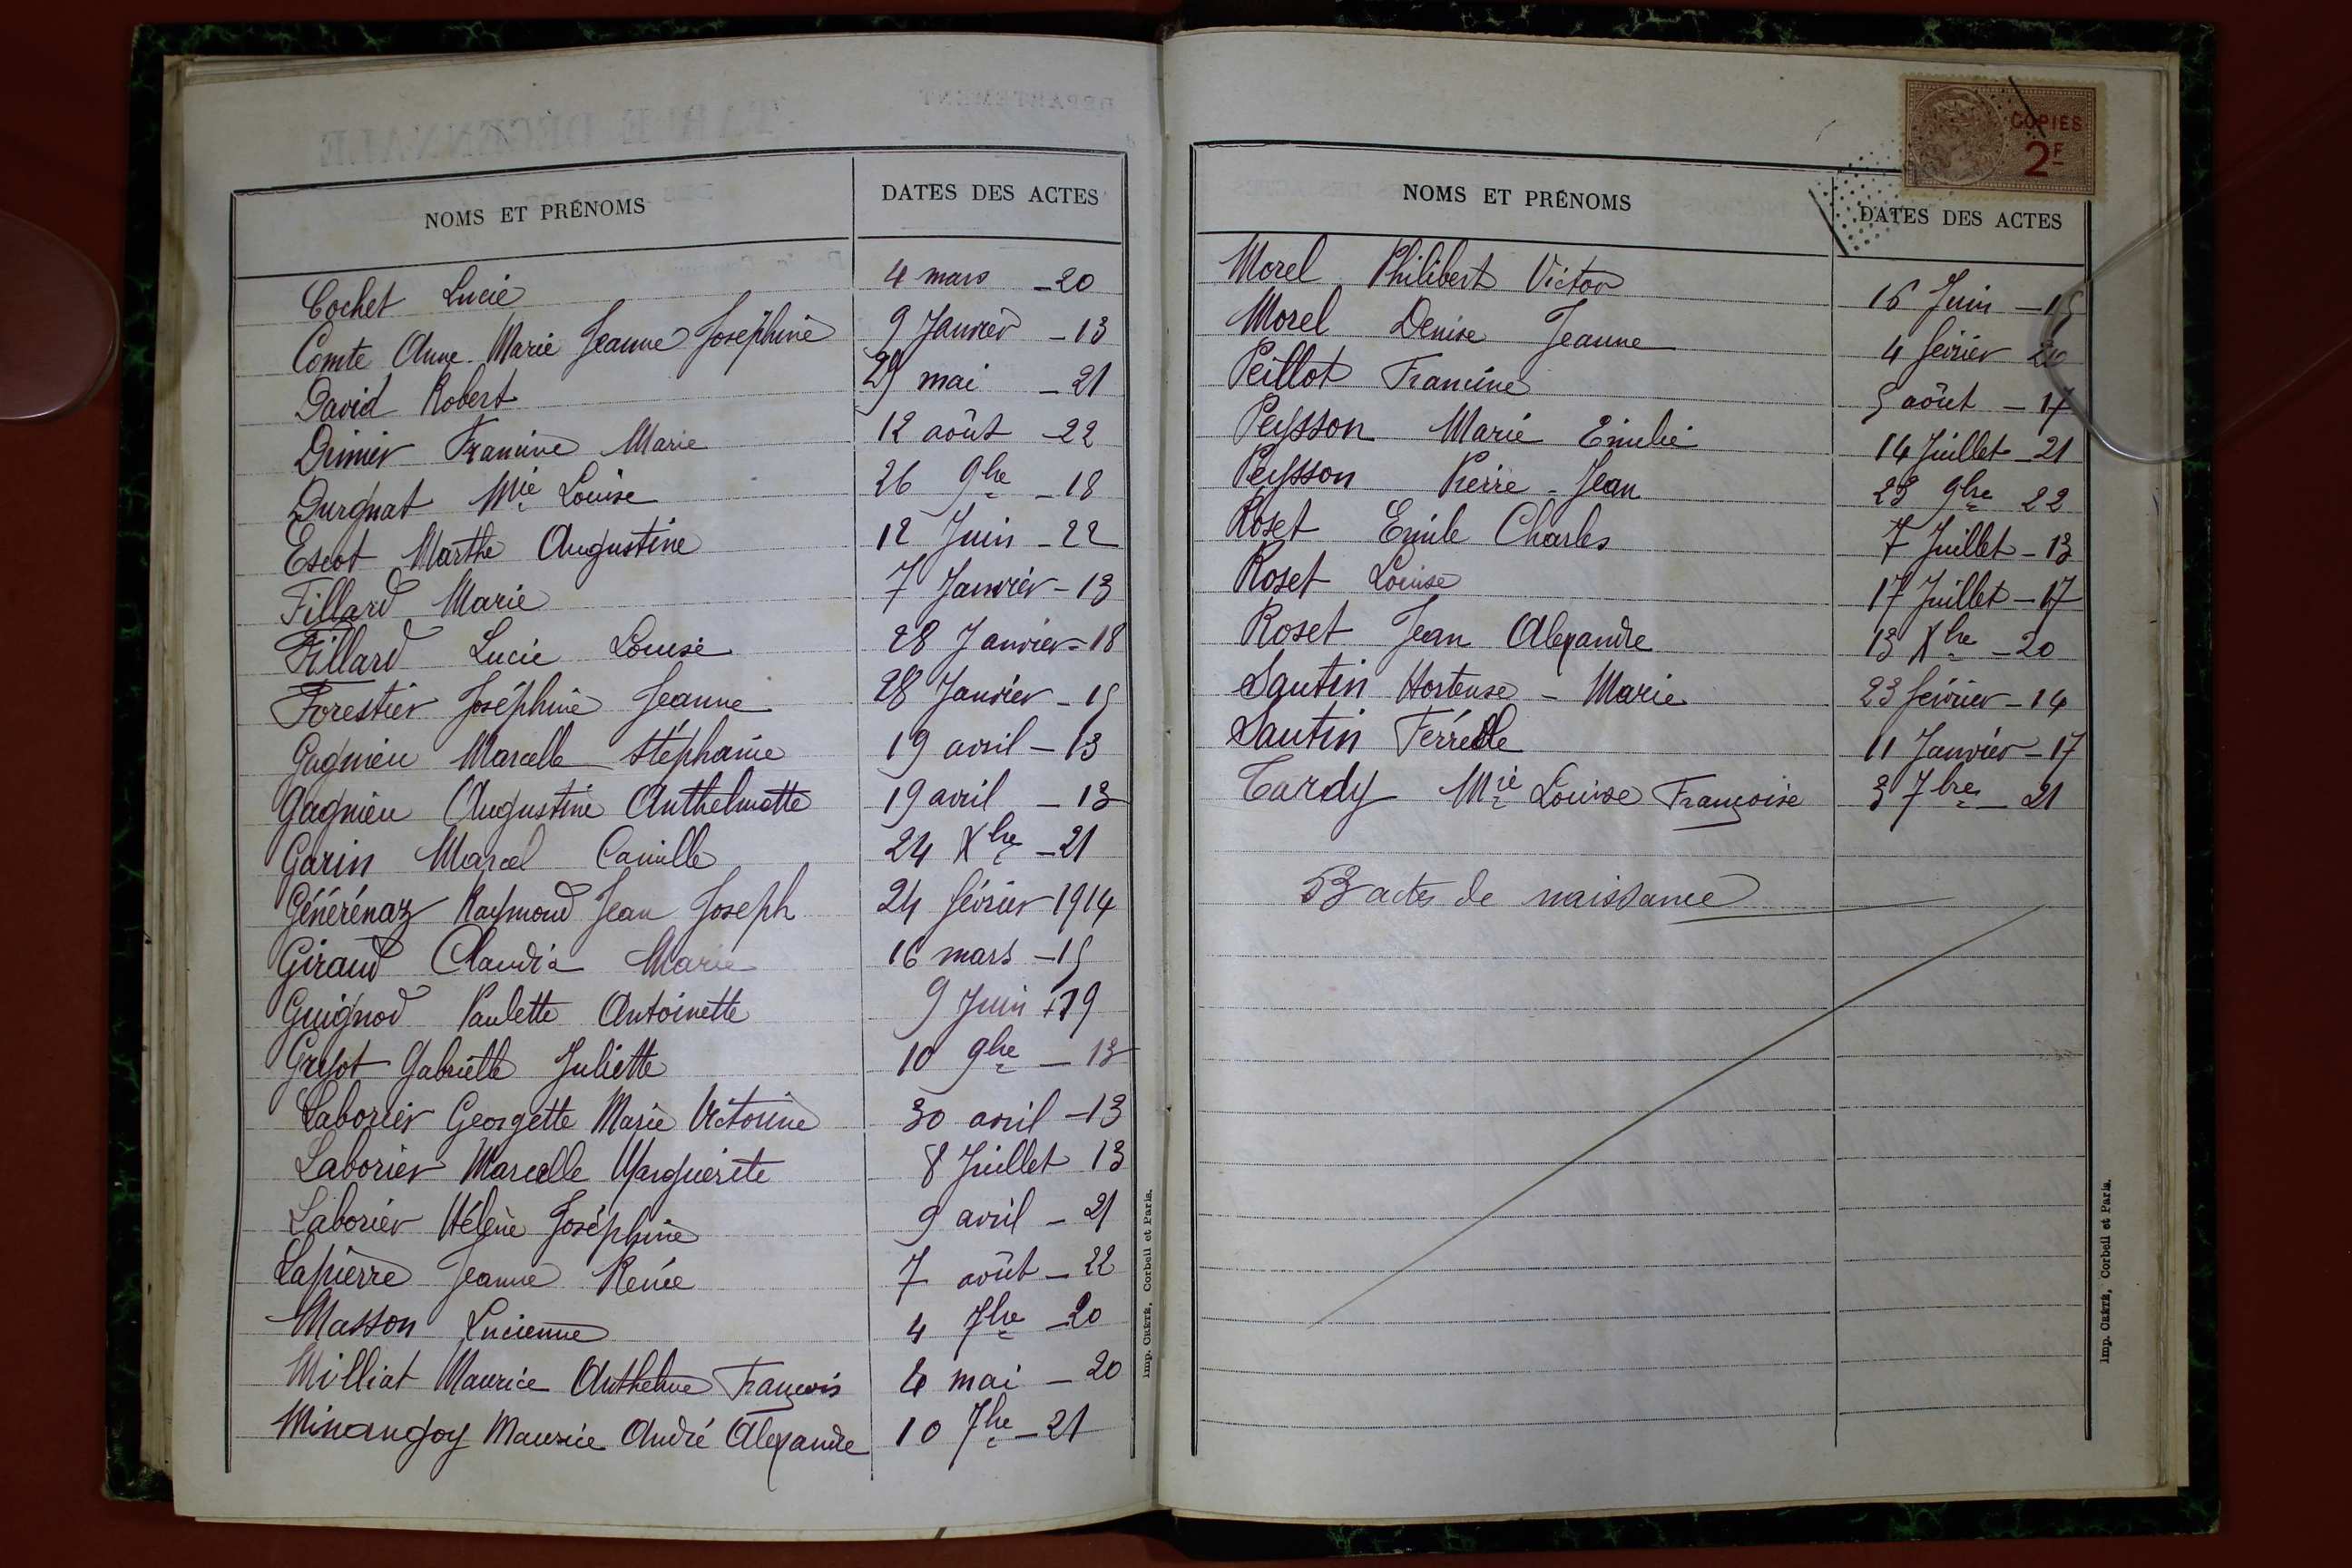 NOMS ET PRÉNOMS DATES DES ACTES
Cochet Lucie 4 mars - 20
Comte Anne Marie Jeanne Joséphine 9 Janvier - 13
David Robert 29 mai - 21
Dimier Francine Marie 12 août - 22
Durgnat Mie Louise 26 9bre - 18
Escot Marthe Augustine 12 Juin - 22
Fillard Marie 7 Janvier - 13
Fillard Lucie Louise 28 Janvier - 18
Forestier Joséphine Jeanne 28 Janvier - 15
Gagnieu Marcelle Stéphanie 19 avril - 13
Gagnieu Augustine Anthelmette 19 avril - 13
Garin Marcel Camille 24 Xbre - 21
Générénaz Raymond Jean Joseph 24 février 1914
Giraud Claudia Marie 16 mars - 15
Guignod Paulette Antoinette 9 Juin 19
Gresot Gabrielle Juliette 10 9bre - 13
Laborier Georgette Marie Victorine 30 avril - 13
Laborier Marcelle Marguerite 8 Juillet 13
Laborier Hélène Joséphine 9 avril - 21
Lapierre Jeanne Renée 7 août - 22
Masson Lucienne 4 7bre - 20
Milliat Maurice Anthelme François 4 mai - 20
Minangoy Maurice André Alexandre 10 7bre - 21
Imp. CRÉTÉ, Corbeil et Paris.
COPIES
2F
NOMS ET PRÉNOMS DATES DES ACTES
Morel Philibert Victor 16 Juin - 15
Morel Denise Jeanne 4 février 20
Peillot Francine 5 août - 17
Peysson Marie Emilie 14 Juillet - 21
Peysson Pierre - Jean 23 9bre 22
Roset Emile Charles 7 Juillet - 13
Roset Louise 17 Juillet - 17
Roset Jean Alexandre 13 Xbre - 20
Santin Hortense - Marie 23 février - 14
Santin 11 Janvier - 17
Tardy Mie Louise Françoise 3 7bre - 21
53 actes de naissance
Imp. CRÉTÉ, Corbeil et Paris.